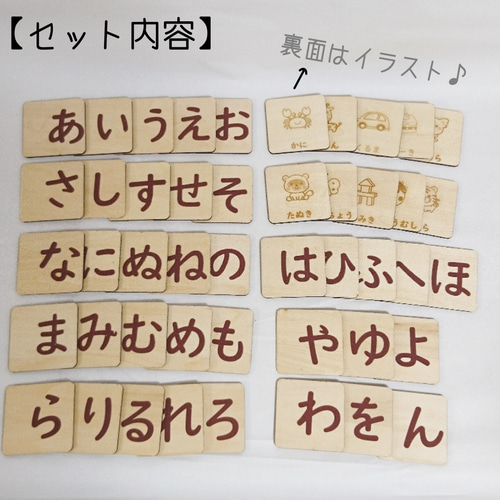 【セット内容】
裏面はイラスト♪
あいうえお
かに
さしすせそ
たぬき
なにぬねの
はひふへほ
まみむめも
やゆよ
らりるれろ
わをん